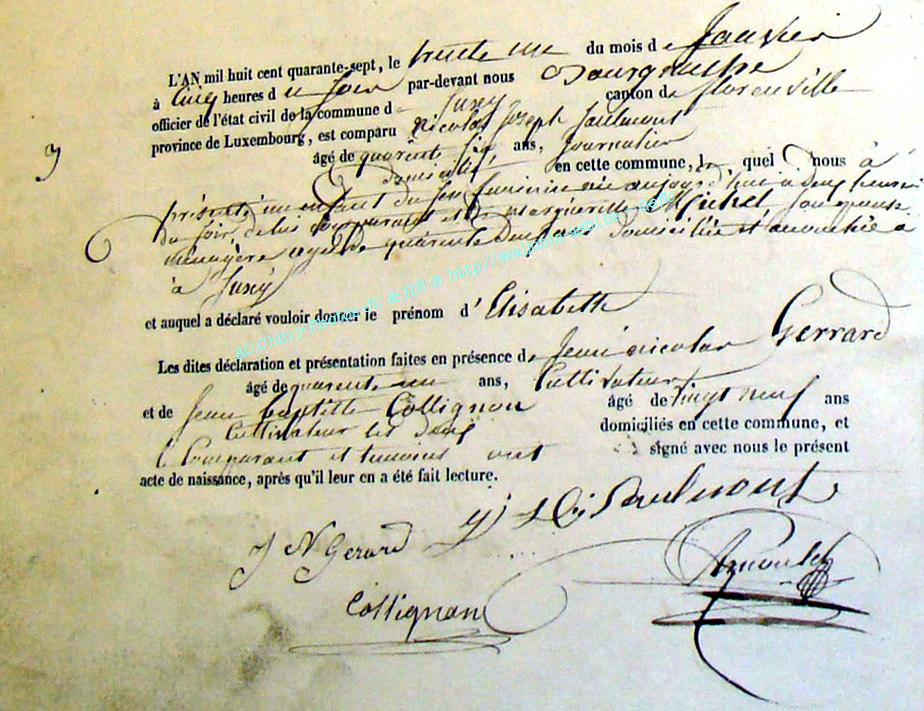 L'AN mil huit cent quarante-sept, le trente un du mois de Janvier
à Cinq heures d u Soir par-devant nous Bourgmestre
officier de l'état civil de la commune de Jusey canton de florenville
province de Luxembourg, est comparu Nicolas Joseph Saulmont
âgé de quarente six ans, Journalier
domicilié en cette commune, le quel nous à
3
présenté un enfant du sexe feminine née aujourd'hui à deux heures
du soir de lui comparant et de marguerite Michel son epouse
menagère agée de quarente deux ans domiciliée et accouchée a
à Jusey
et auquel a déclaré vouloir donner le prénom d'Elisabeth
Les dites déclaration et présentation faites en présence de Jean nicolas Gerrard
âgé de quarente un ans, Cultivateur
et de Jean baptiste Collignon âgé de vingt neuf ans
Cultivateur les deux domiciliés en cette commune, et
le Comparant et temoins ont signé avec nous le présent
acte de naissance, après qu'il leur en a été fait lecture.
Saulmont
J N Gerard
Collignon